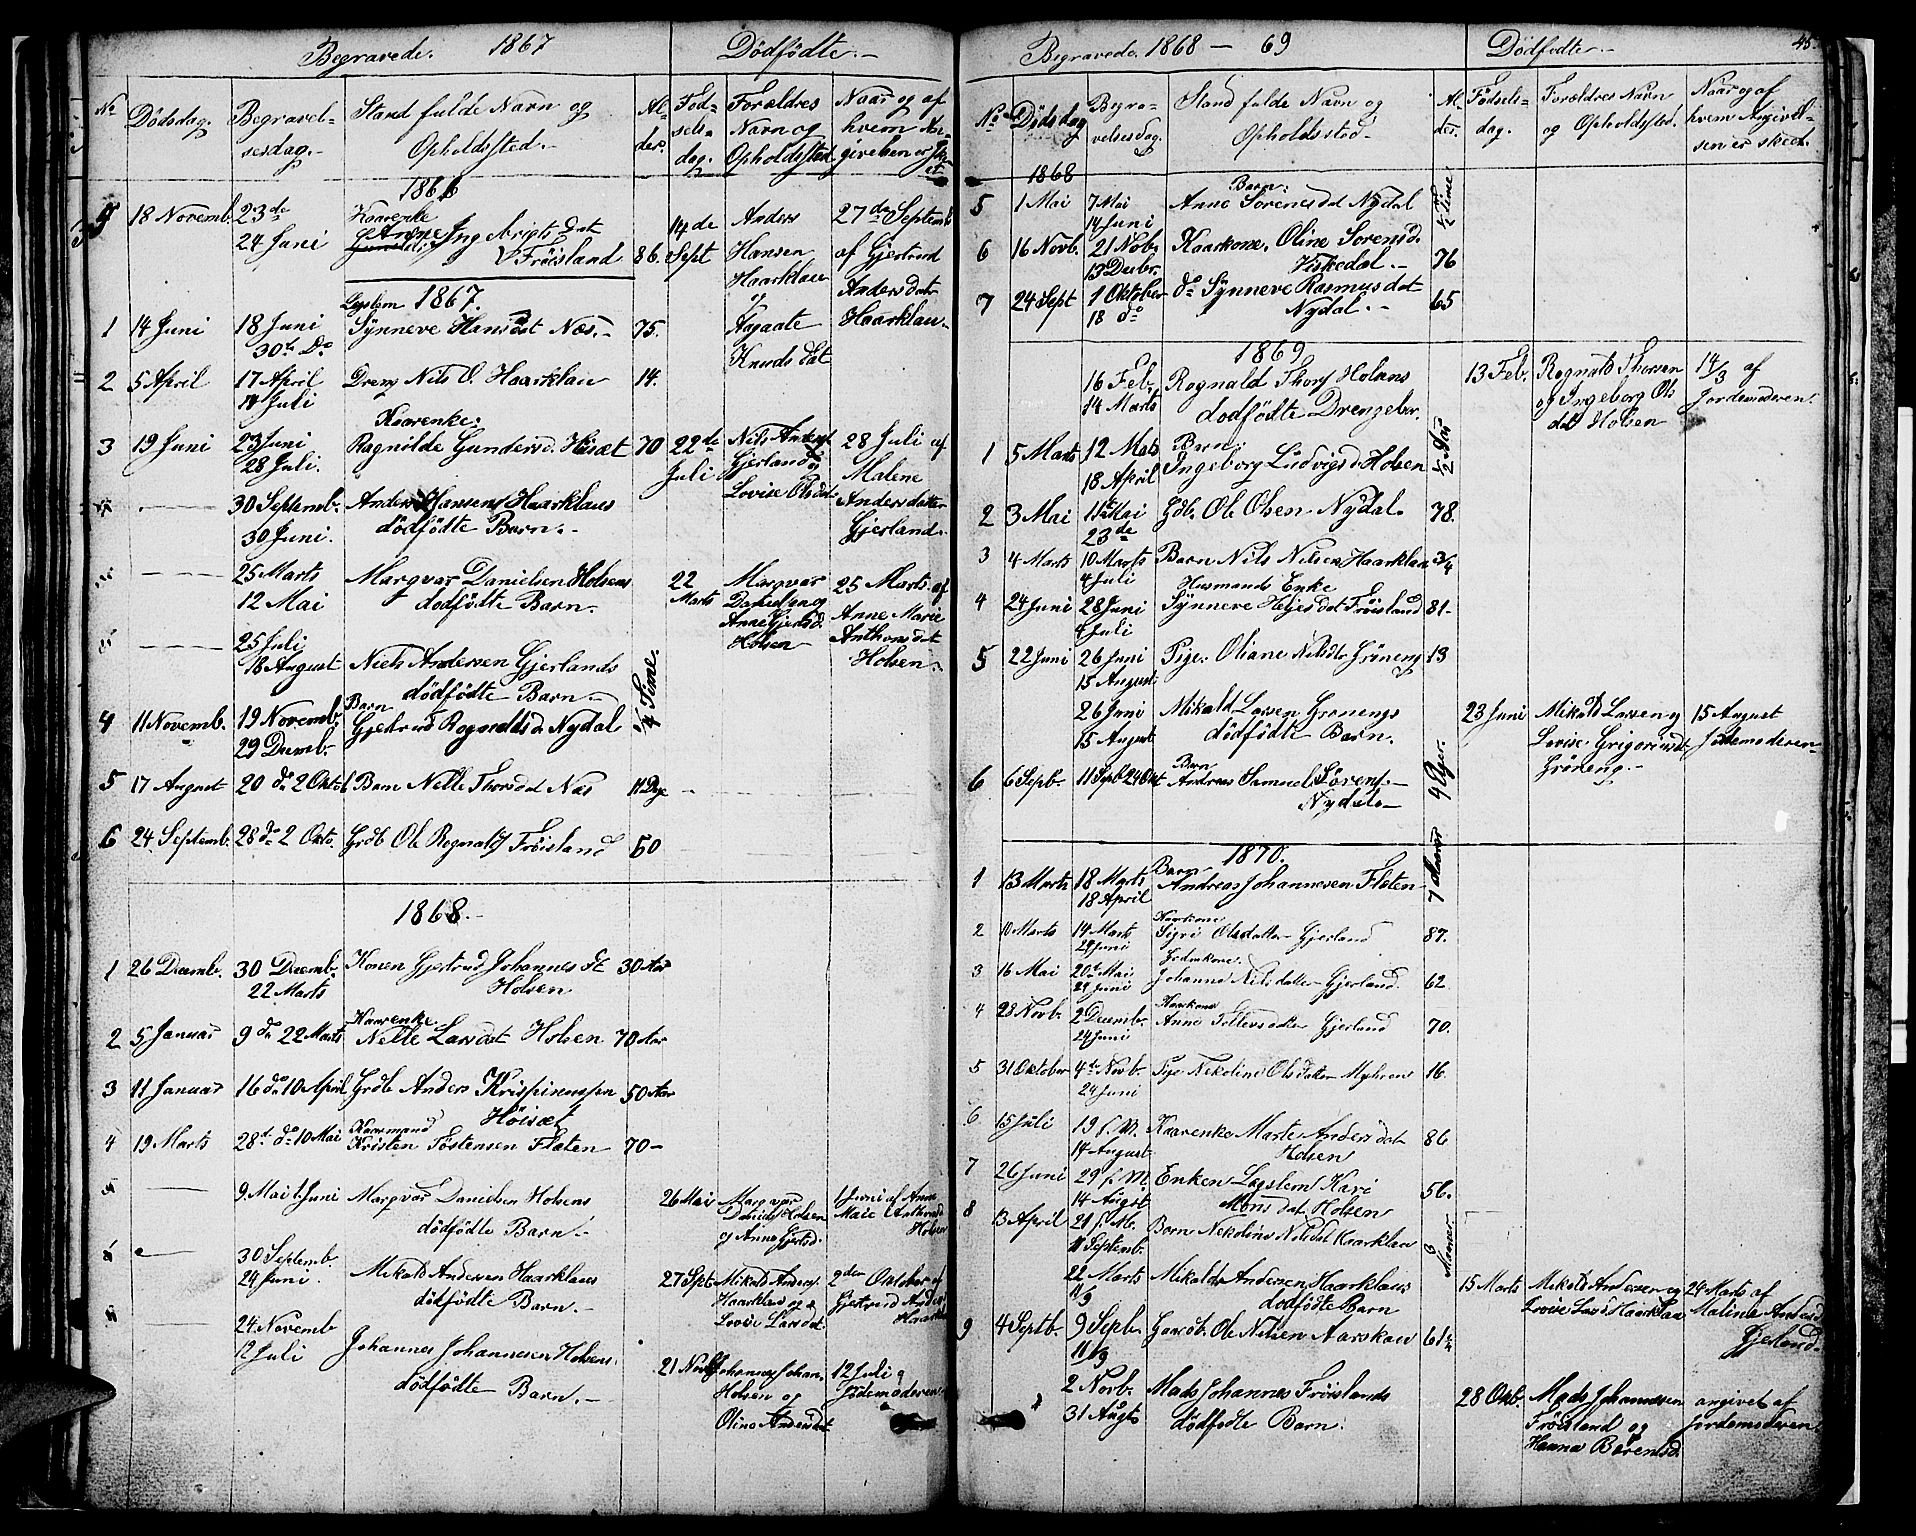 Begravede. 1867 Dödfödte.
No Dödsdag. Begravel-sesdag. Stand fulde Navn og Opholdssted. Al-der. Föd-sels-dag. Forældres Navn og Opholdssted Naar og af hvem An-givelsen er skeet
1866
5 18 Novemb. 23de 24 Juni Kaarenke Anne Ing Frôisland 86.
14de Sept Anders Hansen Haarklau og Agaate Knudsdat 27de Septemb af Gjertrud Andersdat Haarklau.
1867.
1 14 Juni 18 Juni 30te Do Legslem Synneve Hansdat Næs. 75.
2 5 April 17 April 14 Juli Dreng Nils O. Haarklau 14.
3 19 Juni 23 Juni 28 Juli. Kaarenke: Ragnilde Gundersd. Höisæt 70
22de Juli Nils Anders Gjerland og Lovise Olsdat 28 Juli af Malene Andersdatter Gjerland.
" — 30 Septemb. 30 Juni. Anders Hansens Haarklaus dödfödte Barn.
" — 25 Marts 12 Mai Margvar Danielsen Holsens dodfödte Barn.
22 Marts Margvar Daniels og Anne Gjertsd. Holsen 25 Marts af Anne Marie Anthonsdat Holsen.
" — 25 Juli 18 August Niels Andersen Gjerlands dödfödte Barn.
4 11 Novemb. 19 Novemb. 29 Decemb. Barn Gjertrud Rognaldsd. Nydal 1/4 Time.
5 17 August 20 do 2 Oktob Barn Nelle Thorsdat Næs 11 Dge
6 24 Septemb. 28 do 2 Okto. Grdb Ole Rognalds Fröisland 50
1868.
1 26 Decemb. 30 Decemb. 22 Marts Konen Gjertrud Johannesdt Holsen 30 Aar
2 5 Januar 9 do 22 Marts Kaarenke Nelle Larsdat Holsen 70 Aar
3 11 Januar 16 do 10 April Grdb Anders Krispinussen Höisæt 50 Aar
4 19 Marts 28t do 10 Mai Kaarmand Kristen Töstensen Flaten 70
" — 9 Mai 1 Juni Margvar Danielsen Holsens dödfödte Barn.
26 Mai Margvar Daniels Holsen og Anne Gjertsd. 1 Juni af Anne Marie Anthonsd Holsen
" — 30 Septemb. 24 Juni. Mikald Andersen Haarklaus dödfödte Barn.
27 Sept. Mikald Anders. Haarklau og Lovise Larsdat. 2den Oktober af Gjertrud Anders Haarkl
" 24 Novemb 12 Juli Johannes Johannesen Holsens dödfödte Barn.
21 Novb Johannes Johan. Holsen og Oline Andersdat 12 Juli Jordemoderen
Begravede. 1868 — 69 Dödfödte. 45.
No Dödsdag Begra-velsesdag. Stand fulde Navn og Opholdssted. Al-der. Födsels-dag. Forældres Navn og Opholdssted. Naar og af hvem Angivel-sen er skeet.
1868
5 1 Mai 7 Mai 14 Juni Barn: Anne Sorensdat Nydal 1/2 Time
6 16 Novb. 21 Nob. 13 Decbr. Kaarkone. Oline Sorensd. Viskedal. 76
7 24 Sept 1 Oktober 18 do do Synneve Rasmusdat Nydal. 65
1869
16 Feb. 14 Marts Rognald Thors Holsens dodfödte Drengebar.
13 Feb. Rognald Thorsen og Ingeborg Olsdat Holsen 14/3 af Jordemoderen.
1 5 Marts 12 Mats 18 April Barn: Ingeborg Ludvigsd. Holsen 1/2 Aar
2 3 Mai 11te Mai 23de Gdb. Ole Olsen Nydal. 78.
3 4 Marts 10 Marts 4 Juli Barn Nils Nilsen Haarklau 3/4
4 24 Juni 28 Juni 4 Juli Husmands Enke Synneve Heljesdat Fröisland 81
5 22 Juni 26 Juni 15 August Pige. Oliane Nilsdtr Gröneng 13
26 Juni 15 August Mikald Larsen Grönengs dödfödte Barn.
23 Juni Mikald Larsen og Lovise Grigoriusdt Gröneng. 15 August Jordemoderen
6 6 Sepb. 11 Sepb 24 Okt Barn Andreas Samuel Sörens. Nydal 4 Uger.
1870.
1 13 Marts 18 Marts 18 April Barn Andreas Johannesen Flaten 7 Maaner
2 10 Marts 14 Marts 24 Juni Kaarkone Sigri Olsdatter Gjerland 87.
3 16 Mai 20t Mai 24 Juni Grdmkone. Johanne Nilsdatter Gjerland. 62
4 28 Novb. 2 Decemb. 24 Juni Kaarkone Anne Tollevsdatter Gjerland 70.
5 31 Oktober 4de Novb. 24 Juni Pige Nekoline Olsdatter Myhren 16.
6 15 Juli 19 s. M. 14 August Kaarenke Marte Andersdat Holsen 86
7 26 Juni 29 s. M 14 Augst Enken Legslem Kari Monsdat Holsen 56.
8 13 April 21 s. M. 11 Septemb. Barn Nekoline Nilsdat Haarklau 6 Maaner
22 Marts 11/9 Mikalds Andersen Haarklaus dodfödte Barn
15 Marts Mikald Andersen og Lovise Larsd Haarklau 24 Marts af Malina Andersd Gjerland.
9 4 Septb. 9 Sepb. 11/9 Gaardb. Ole Nilsen Aarskau 61 1/4
" 2 Novb. 31 Augts Mads Johannes Fröislands dödfodte Barn.
28 Okb. Mads Johannesen Fröisland og Hanna Barentsd. angivet af Jordemoderen